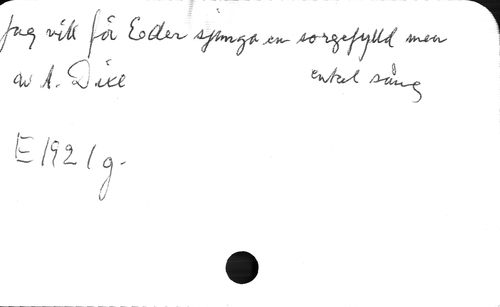 Jag vill för Eder sjunga en sorgefylld men
enkel sång
av A. Dixe
E 1921 g.